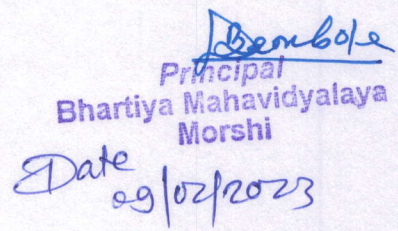 Principal
Bhartiya Mahavidyalaya
Morshi
Date
09/02/2023